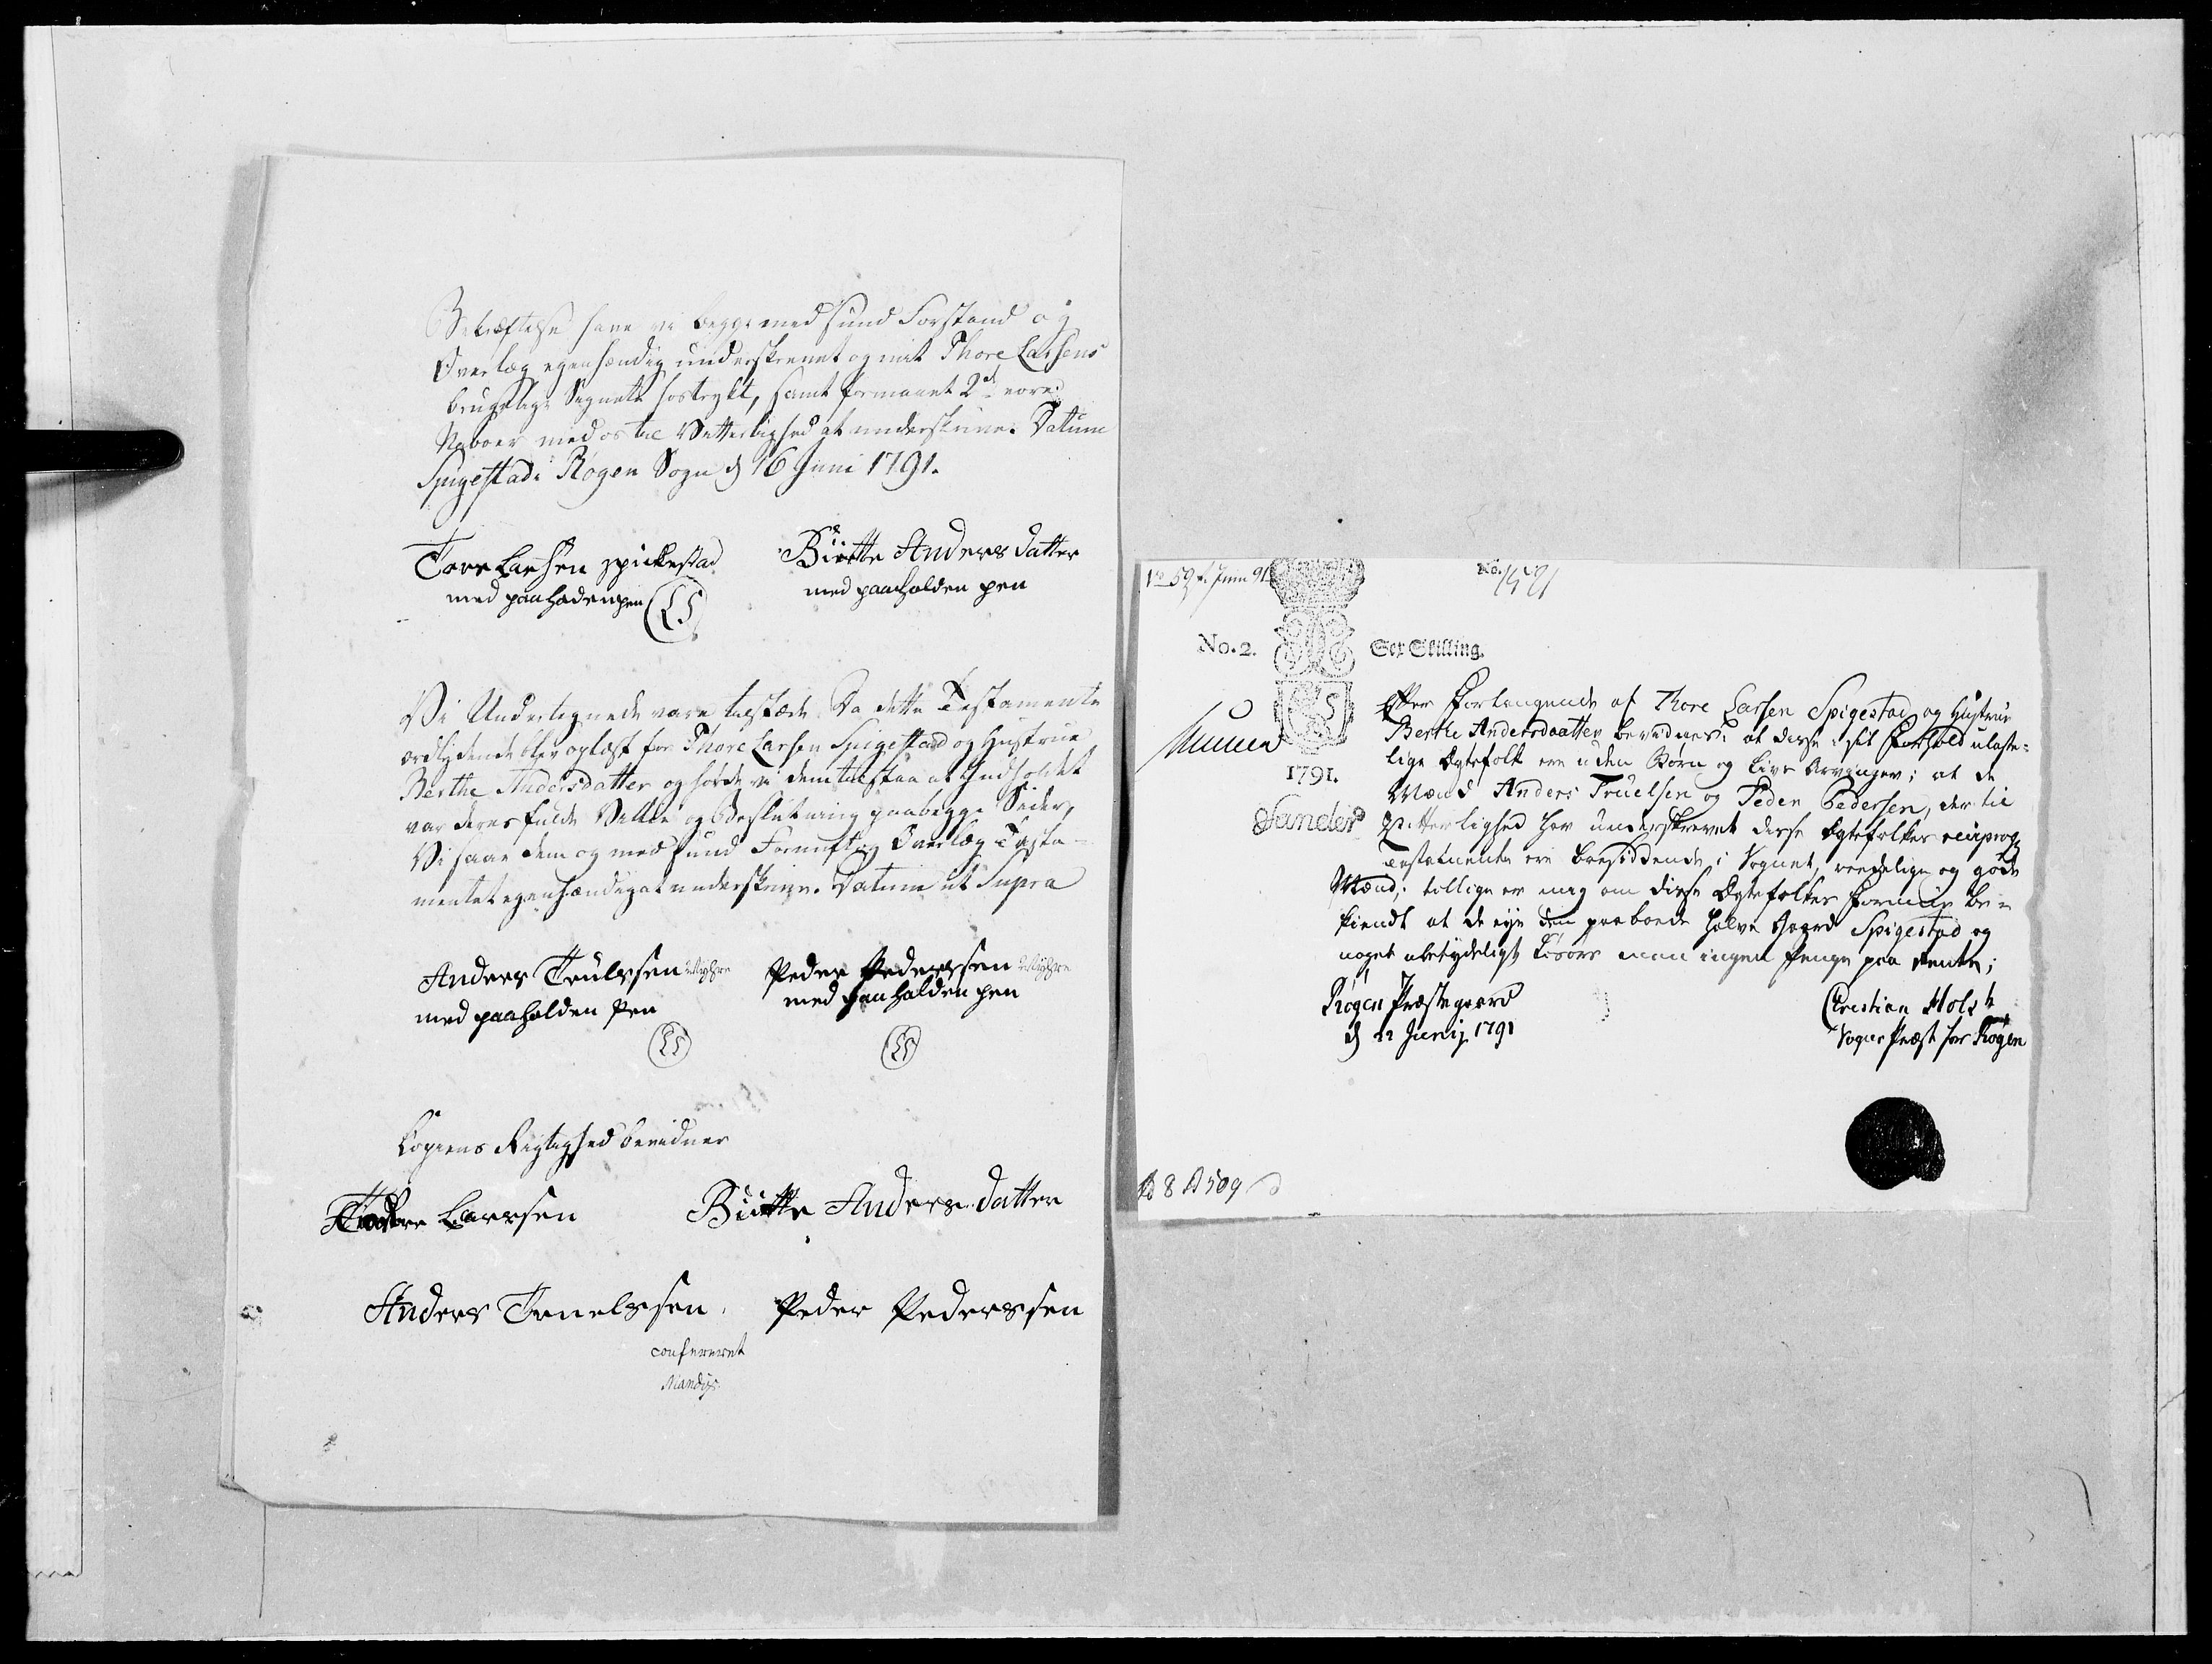 Bekræftelse have vi begge med sund Forstand og
Overlæg egenhændig underskrevet og mit Thore Larsens
brugelige Signete hostrykt, samt formaaet 2de vore
Naboer med os til Vitterlighed at underskrive. Datum
Spigestad i Røgen Sogn d 16 Juni 1791.
Tore Larsen Spickestad
med paaholden pen
LS
Birtte Anders datter
med paaholden pen
Vi Undertegnede vare tilstæde Da dette Testamente
ordlydende blev oplæst for Thore Larsen Spigestad og Hustrue
Berthe Andersdatter og hørde vi dem tilstaa at Indholdet
var deres fulde Villie og Beslutning paa begge Sider,
Vi saae dem og med sund Fornuft og Overlæg Testa-
mentet egenhændig at underskrive. Datum ut Supra
Anders Trulssen Myhre
med paaholden Pen
LS
Peder Pederssen Myhre
med paaholden pen
LS
Copiens Rigtighed bevidner
Tore Larssen
Birtte Anders datter
Anders Truelssen
Peder Pederssen
confereret
No. 59 f. Juni 91
No. 1591
No. 2.
Sex Skilling.
1791.
Sander
Efter Forlangende af Thore Larsen Spigestad og Hustrue
Berthe Andersdaatter bevidnes: at disse i sit Forhold ulaste-
lige Ægtefolk ere uden Børn og Livs Arvinger; at de
Mænd Anders Truelsen og Peder Pedersen, der til
Vitterlighed har underskrevet disse Ægtefolkes reciproq
Testamente ere boesiddende i Sognet, vederlige og gode
Mænd; tillige er mig om disse Ægtefolkes Formue be-
kiendt at de eye den paaboende halve Gaard Spigestad og
noget ubetydeligt Løsøre men ingen Penge paa Rente;
Røgen Præstegaard
d 22 Junij 1791
Christian Holst
Sogne Præst for Røgen